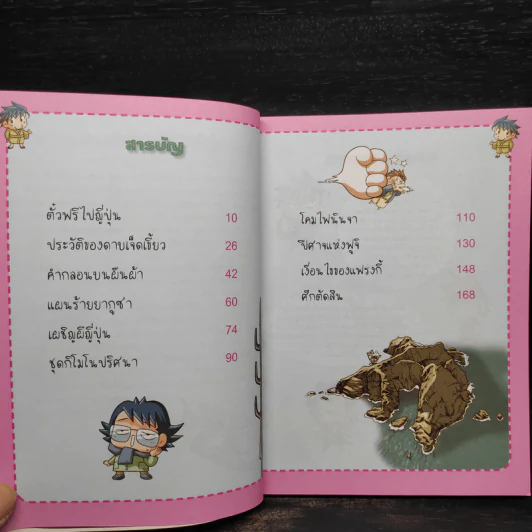 สารบัญ
ตั๋วฟรีไปญี่ปุ่น 10
ประวัติของดาบเจ็ดเขี้ยว 26
คำกลอนบนผืนผ้า 42
แผนร้ายยากูซ่า 60
เผชิญผีญี่ปุ่น 74
ชุดกิโมโนปริศนา 90
โคมไฟนินจา 110
ปีศาจแห่งฟูจิ 130
เงื่อนไขของแฟรงกี้ 148
ศึกตัดสิน 168